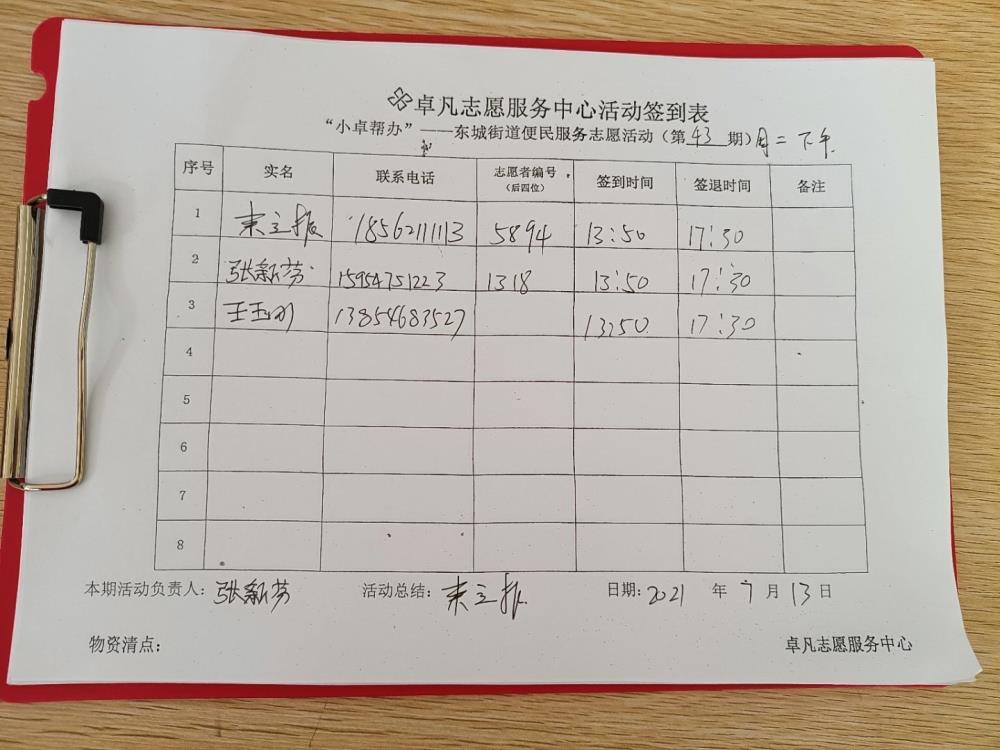 卓凡志愿服务中心活动签到表
“小卓帮办”——东城街道便民服务志愿活动（第43期）周二下午
序号 实名 联系电话 志愿者编号（后四位） 签到时间 签退时间 备注
1 束立振 18562111113 5894 13:50 17:30
2 张新芬 15954751223 1318 13:50 17:30
3 王玉 13854683527 13:50 17:30
4
5
6
7
8
本期活动负责人：张新芬 活动总结：束立振 日期：2021年7月13日
物资清点： 卓凡志愿服务中心